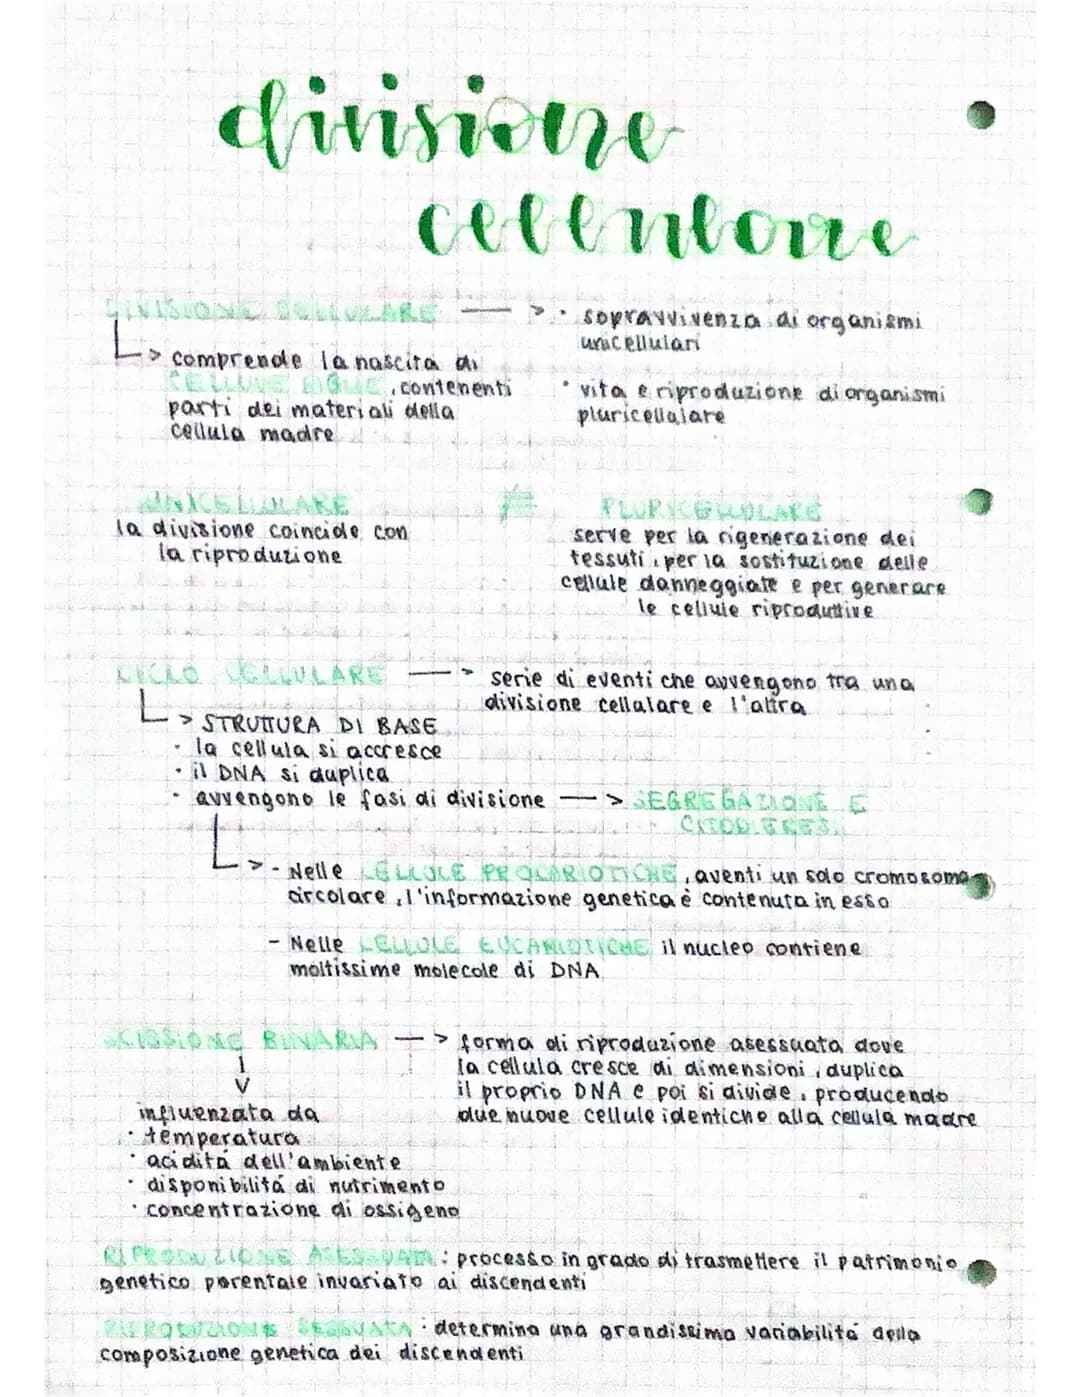 divisione
cellulare
DIVISIONE CELLULARE —> • sopravvivenza di organismi
unicellulari
> comprende la nascita di
CELLULE FIGLIE, contenenti
parti dei materiali della
cellula madre
• vita e riproduzione di organismi
pluricellulare
UNICELLULARE ≠ PLURICELLULARE
la divisione coincide con
la riproduzione
serve per la rigenerazione dei
tessuti, per la sostituzione delle
cellule danneggiate e per generare
le cellule riproduttive
CICLO CELLULARE —> serie di eventi che avvengono tra una
divisione cellulare e l'altra
> STRUTTURA DI BASE
• la cellula si accresce
• il DNA si duplica
• avvengono le fasi di divisione —> SEGREGAZIONE E
> - Nelle CELLULE PROCARIOTICHE, aventi un solo cromosoma
circolare, l'informazione genetica è contenuta in esso
- Nelle CELLULE EUCARIOTICHE il nucleo contiene
moltissime molecole di DNA
SCISSIONE BINARIA —> forma di riproduzione asessuata dove
la cellula cresce di dimensioni, duplica
il proprio DNA e poi si divide, producendo
due nuove cellule identiche alla cellula madre
influenzata da
• temperatura
• acidità dell'ambiente
• disponibilità di nutrimento
• concentrazione di ossigeno
RIPRODUZIONE ASESSUATA: processo in grado di trasmettere il patrimonio
genetico parentale invariato ai discendenti
RIPRODUZIONE SESSUATA: determina una grandissima variabilità della
composizione genetica dei discendenti